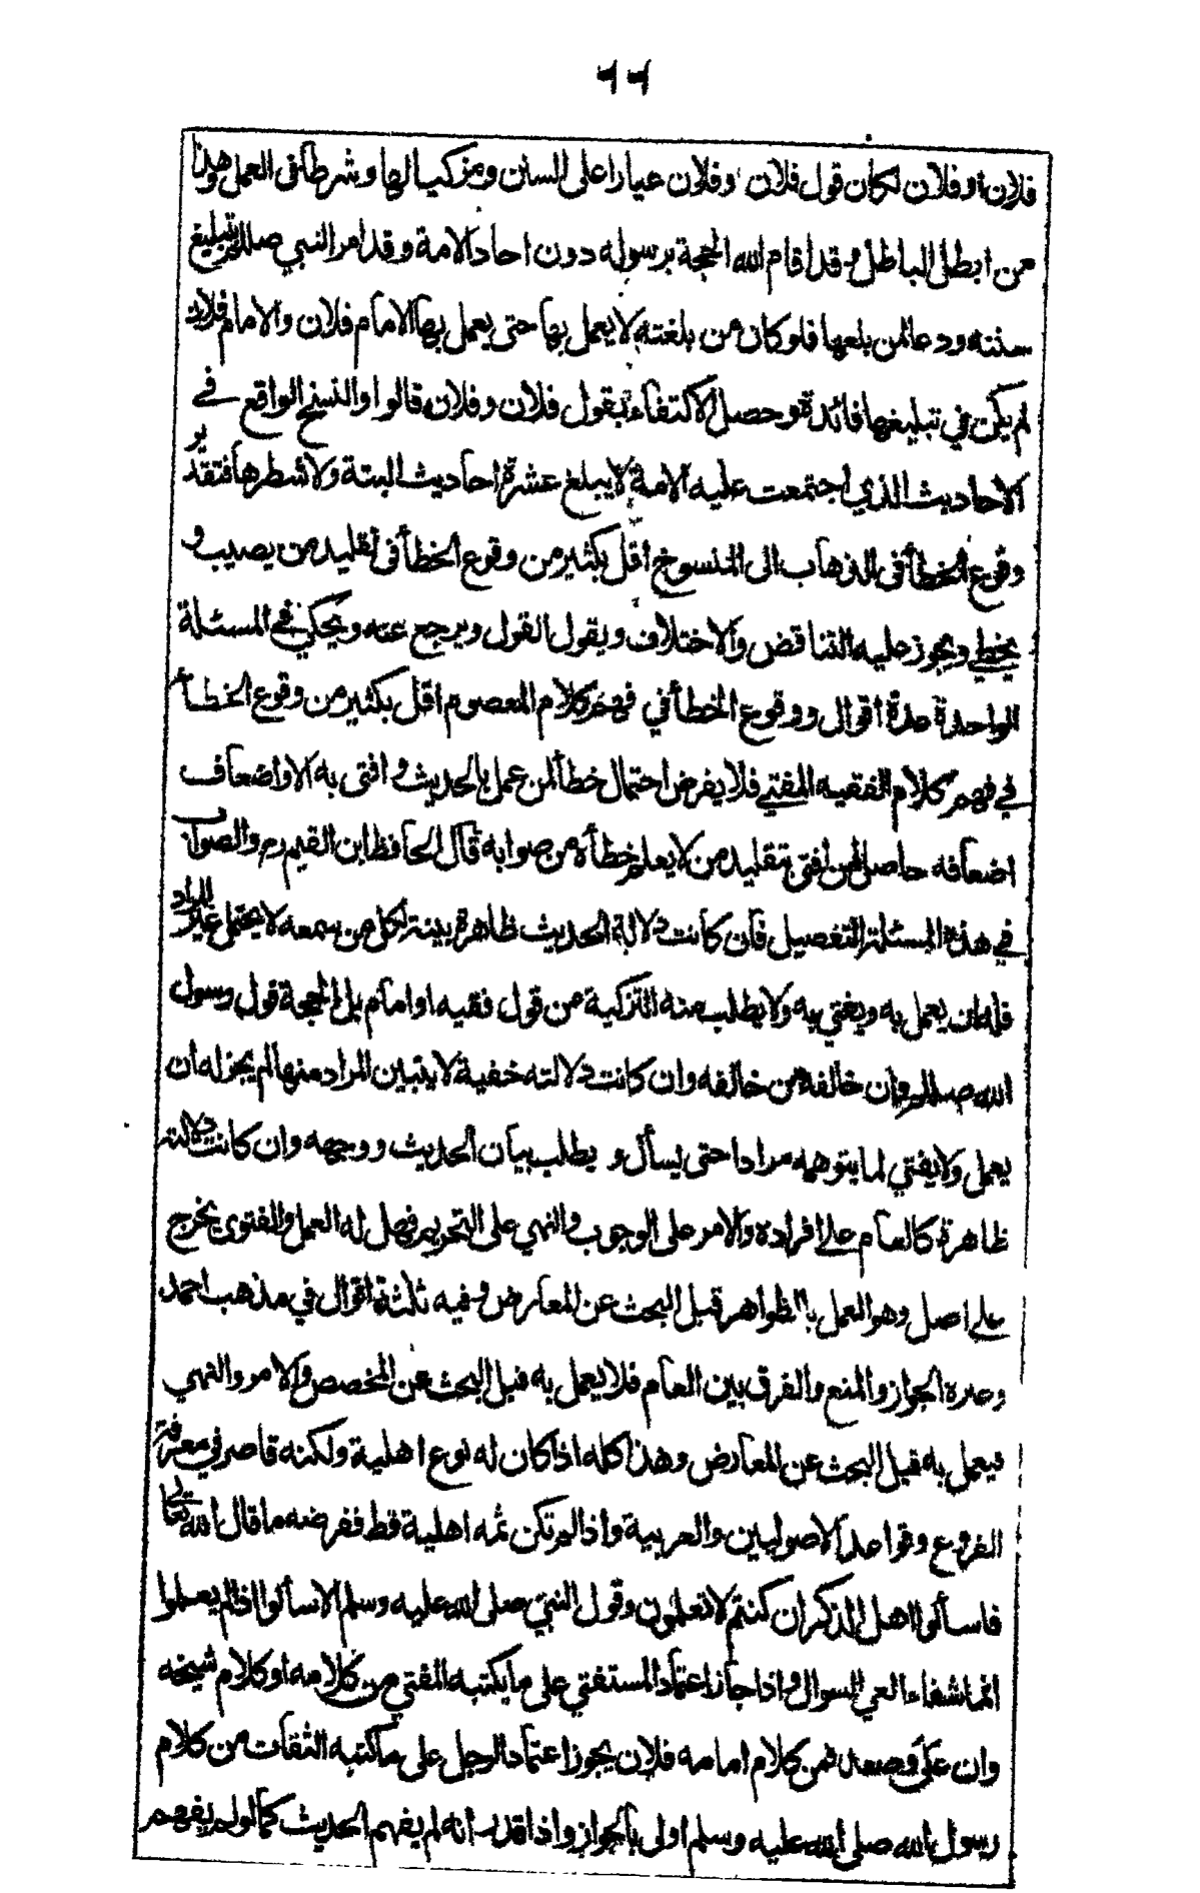 ٦٦
فلان او فلان لكان قول فلان وفلان عيارا على السنن ومزكيا لها وشرطا في العمل وهذا
من ابطل الباطل وقد اقام الله الحجة برسوله دون احاد الامة وقد امر النبي صللم بتبليغ
سننه ودعا لمن بلغها فلو كان من بلغته لا يعمل بها حتى يعمل بها الامام فلان والامام فلان
لم يكن في تبليغها فائدة وحصل الاكتفاء بقول فلان وفلان قالوا والنسخ الواقع في
الاحاديث الذي اجتمعت عليه الامة لا يبلغ عشرة احاديث البتة ولا شطرها فتقدير
وقوع الخطأ في الذهاب الى المنسوخ اقل بكثير من وقوع الخطأ في تقليد من يصيب و
يخطي ويجوز عليه التناقض والاختلاف ويقول القول ويرجع عنه ويحكي في المسئلة
الواحدة عدة اقوال ووقوع الخطأ في فهم كلام المعصوم اقل بكثير من وقوع الخطأ
في فهم كلام الفقيه المفتي فلا يفرض احتمال خطأ لمن عمل بالحديث وافتى به الا واضعاف
اضعافه حاصل لمن افتى بتقليد من لا يعلم خطأه من صوابه قال الحافظ ابن القيم رح والصواب
في هذه المسئلة التفصيل فان كانت دلالة الحديث ظاهرة بينة لكل من سمعه لا يحتمل غير المراد
فله ان يعمل به ويفتي به ولا يطلب منه التزكية من قول فقيه او امام بل الحجة قول رسول
الله صللم وان خالفه من خالفه وان كانت دلالته خفية لا يتبين المراد منها لم يجز له ان
يعمل ولا يفتي لما يتوهمه مرادا حتى يسأل و يطلب بيان الحديث ووجهه وان كانت دلالته
ظاهرة كالعام على افراده والامر على الوجوب والنهي على التحريم فهل له العمل والفتوى يخرج
على اصل وهو العمل بالظواهر قبل البحث عن المعارض وفيه ثلثة اقوال في مذهب احمد
وغيره الجواز والمنع والفرق بين العام فلا يعمل به قبل البحث عن المخصص والامر والنهي
فيعمل به قبل البحث عن المعارض وهذا كله اذا كان له نوع اهلية ولكنه قاصر في معرفة
الفروع وقواعد الاصوليين والعربية واذا لم تكن ثمه اهلية قط ففرضه ما قال الله تعالى
فاسألوا اهل الذكر ان كنتم لا تعلمون وقول النبي صلى الله عليه وسلم الا سألوا اذا لم يعلموا
انما شفاء العي السوال واذا جاز اعتماد المستفتي على ما يكتبه المفتي من كلامه او كلام شيخه
وان علا وصعد فمن كلام امامه فلان يجوز اعتماد الرجل على ما كتبه الثقات من كلام
رسول الله صلى الله عليه وسلم اولى بالجواز واذا قدر انه لم يفهم الحديث كما لو لم يفهم